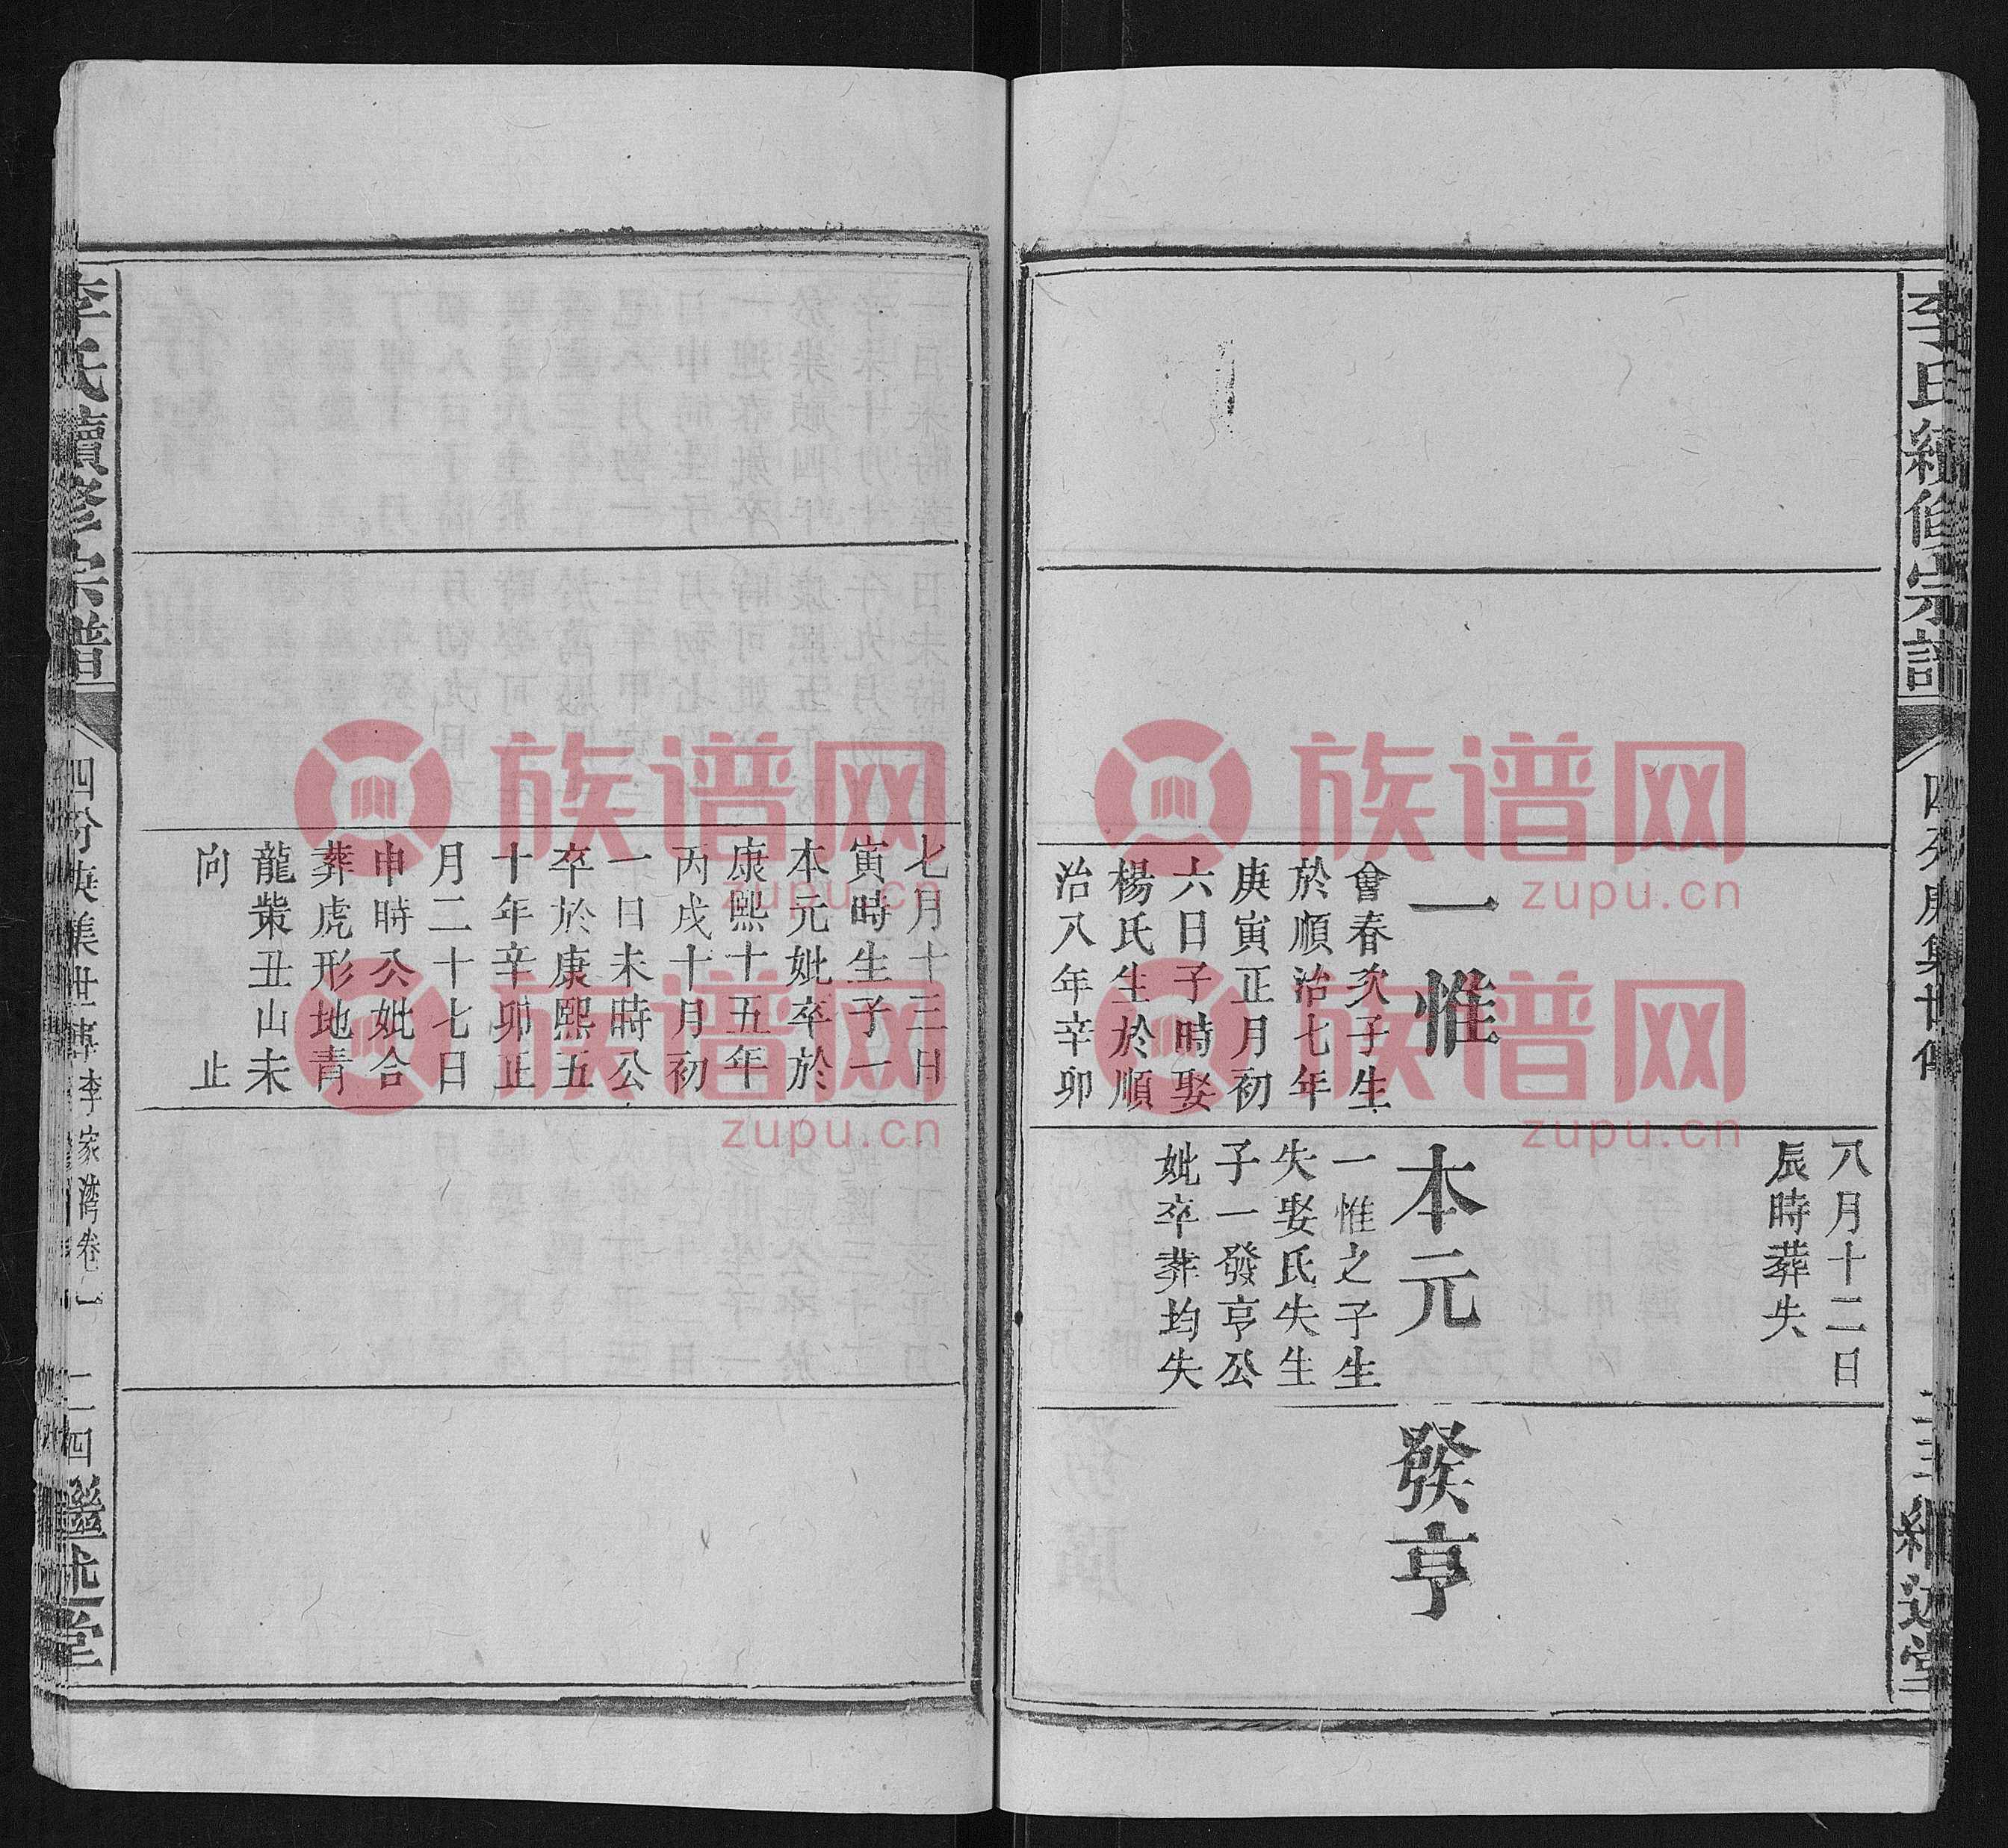 李氏續修宗譜
繼述堂
一惟
會春次子生
於順治七年
庚寅正月初
六日子時娶
楊氏生於順
治八年辛卯
八月十二日
辰時葬失
本元
一惟之子生
失娶氏失生
子一發亨公
妣卒葬均失
發亨
七月十三日
寅時生子一
本元妣卒於
康熙十五年
丙戌十月初
一日未時公
卒於康熙五
十年辛卯正
月二十七日
申時公妣合
葬虎形地青
龍觜丑山未
向 止
李氏續修宗譜
李家灣卷一
二四
繼述堂
族谱网
zupu.cn
族谱网
zupu.cn
族谱网
zupu.cn
族谱网
zupu.cn